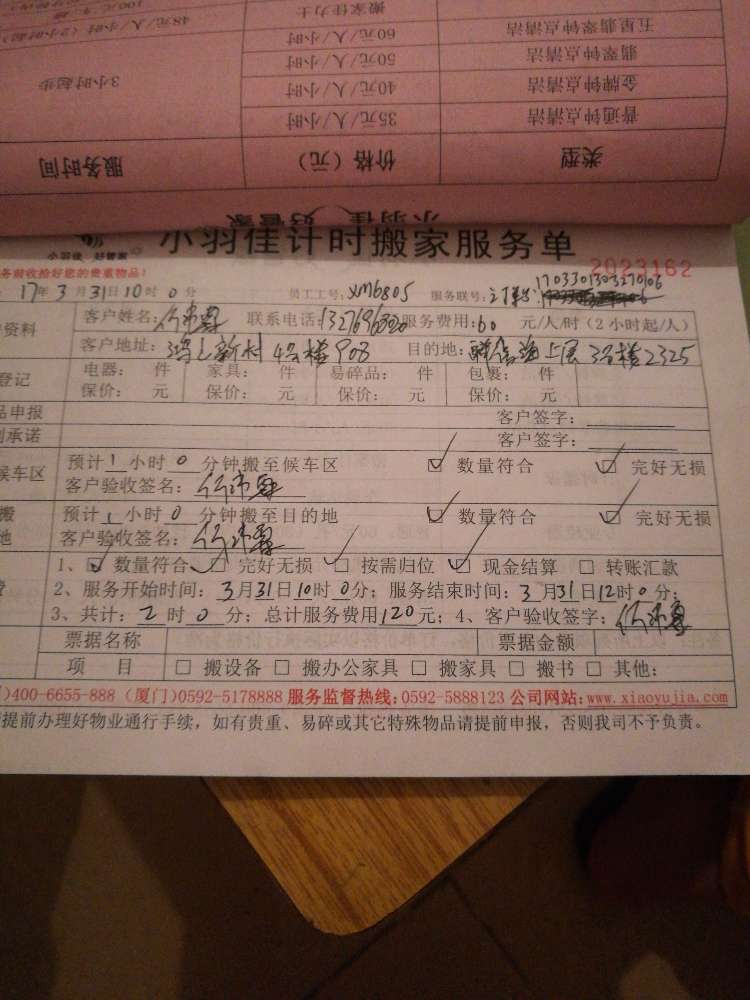 搬家佳力士
48元/人/小时(2小时起)
五星翡翠钟点清洁 60元/人/小时
翡翠钟点清洁 50元/人/小时
金牌钟点清洁 40元/人/小时 3小时起步
普通钟点清洁 35元/人/小时
类型 价格（元） 服务时间
小羽佳 好管家
小羽佳 好管家
小羽佳计时搬家服务单
务前收拾好您的贵重物品! 2023162
17年3月31日10时0分 员工工号:XM6805 服务联号: 1703301303270106
资料 客户姓名: 联系电话: 服务费用:60 元/人/时(2小时起/人)
客户地址: 新村4号楼903 目的地: 海上居3号楼2325
登记 电器: 件 家具: 件 易碎品: 件 包裹: 件
保价: 元 保价: 元 保价: 元 保价: 元
品申报 客户签字:
承诺 客户签字:
候车区 预计1小时0分钟搬至候车区 ☑ 数量符合 ☑ 完好无损
客户验收签名:
搬 预计1小时0分钟搬至目的地 ☑ 数量符合 ☑ 完好无损
地 客户验收签名:
1、☑ 数量符合 ☑ 完好无损 ☑ 按需归位 ☑ 现金结算 □ 转账汇款
2、服务开始时间:3月31日10时0分; 服务结束时间:3月31日12时0分;
3、共计:2时0分; 总计服务费用120元; 4、客户验收签字:
票据名称 票据金额
项 目 □ 搬设备 □ 搬办公家具 □ 搬家具 □ 搬书 □ 其他:
)400-6655-888 (厦门)0592-5178888 服务监督热线:0592-5888123 公司网站:www.xiaoyujia.com
提前办理好物业通行手续,如有贵重、易碎或其它特殊物品请提前申报,否则我司不予负责。